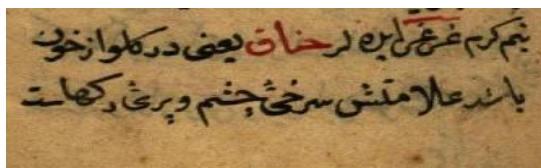 نیم کرم غرغره ایره لر خناق یعنی در کلو از خون
باشد علامتش سرخی چشم و پری رکهاست